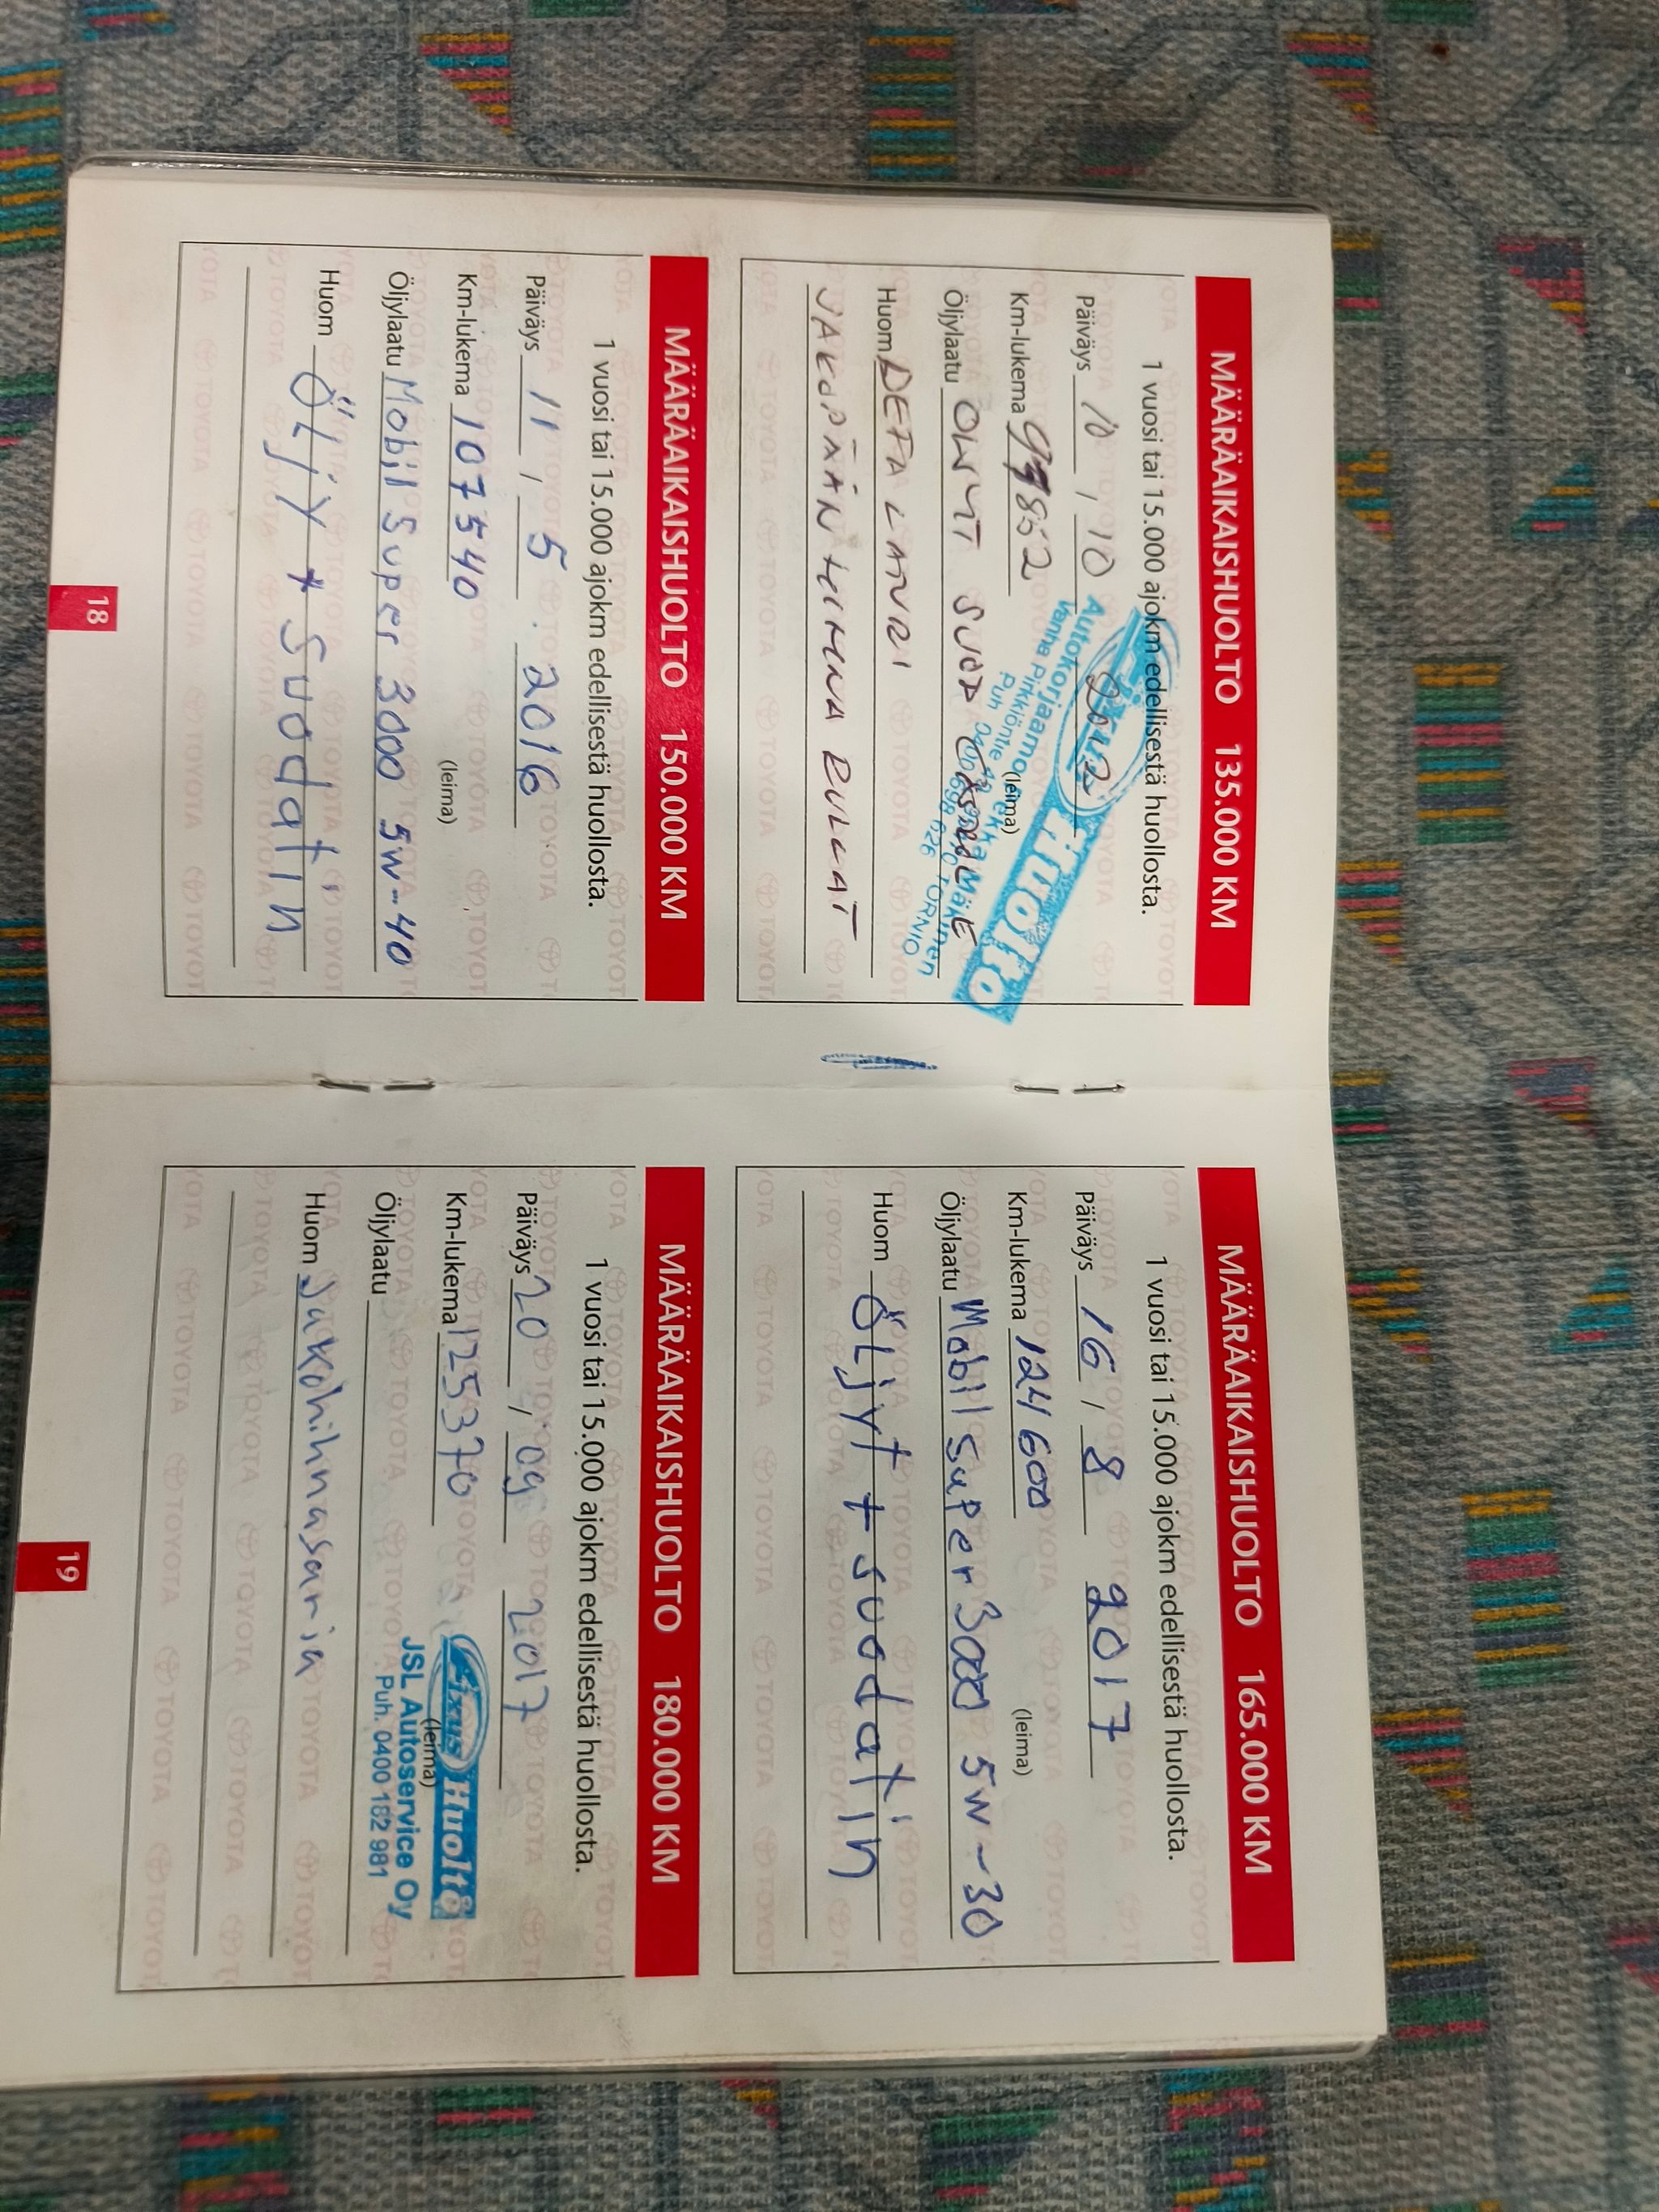 MÄÄRÄAIKAISHUOLTO 135.000 KM
1 vuosi tai 15.000 ajokm edellisestä huollosta.
Päiväys 10 / 10 2012
Km-lukema 99852
(leima)
Huolto
Autokorjaamo Pekka Mäkinen
Öljylaatu ÖLJYT SUOD
Huom DEFA LATURI
JAKOPÄÄN HIHNA RULLAT
MÄÄRÄAIKAISHUOLTO 150.000 KM
1 vuosi tai 15.000 ajokm edellisestä huollosta.
Päiväys 11 / 5 . 2016
Km-lukema 107540
(leima)
Öljylaatu Mobil Super 3000 5w-40
Huom ÖLjy + Suodatin
18
MÄÄRÄAIKAISHUOLTO 165.000 KM
1 vuosi tai 15.000 ajokm edellisestä huollosta.
Päiväys 16 / 8 2017
Km-lukema 124600
(leima)
Öljylaatu Mobil Super 3000 5w-30
Huom ÖLjyt + suodatin
MÄÄRÄAIKAISHUOLTO 180.000 KM
1 vuosi tai 15.000 ajokm edellisestä huollosta.
Päiväys 20 / 09 2017
Km-lukema 125370
Fixus Huolto
(leima)
JSL Autoservice Oy
Puh. 0400 182 981
Öljylaatu
Huom Jakohihnasarja
19